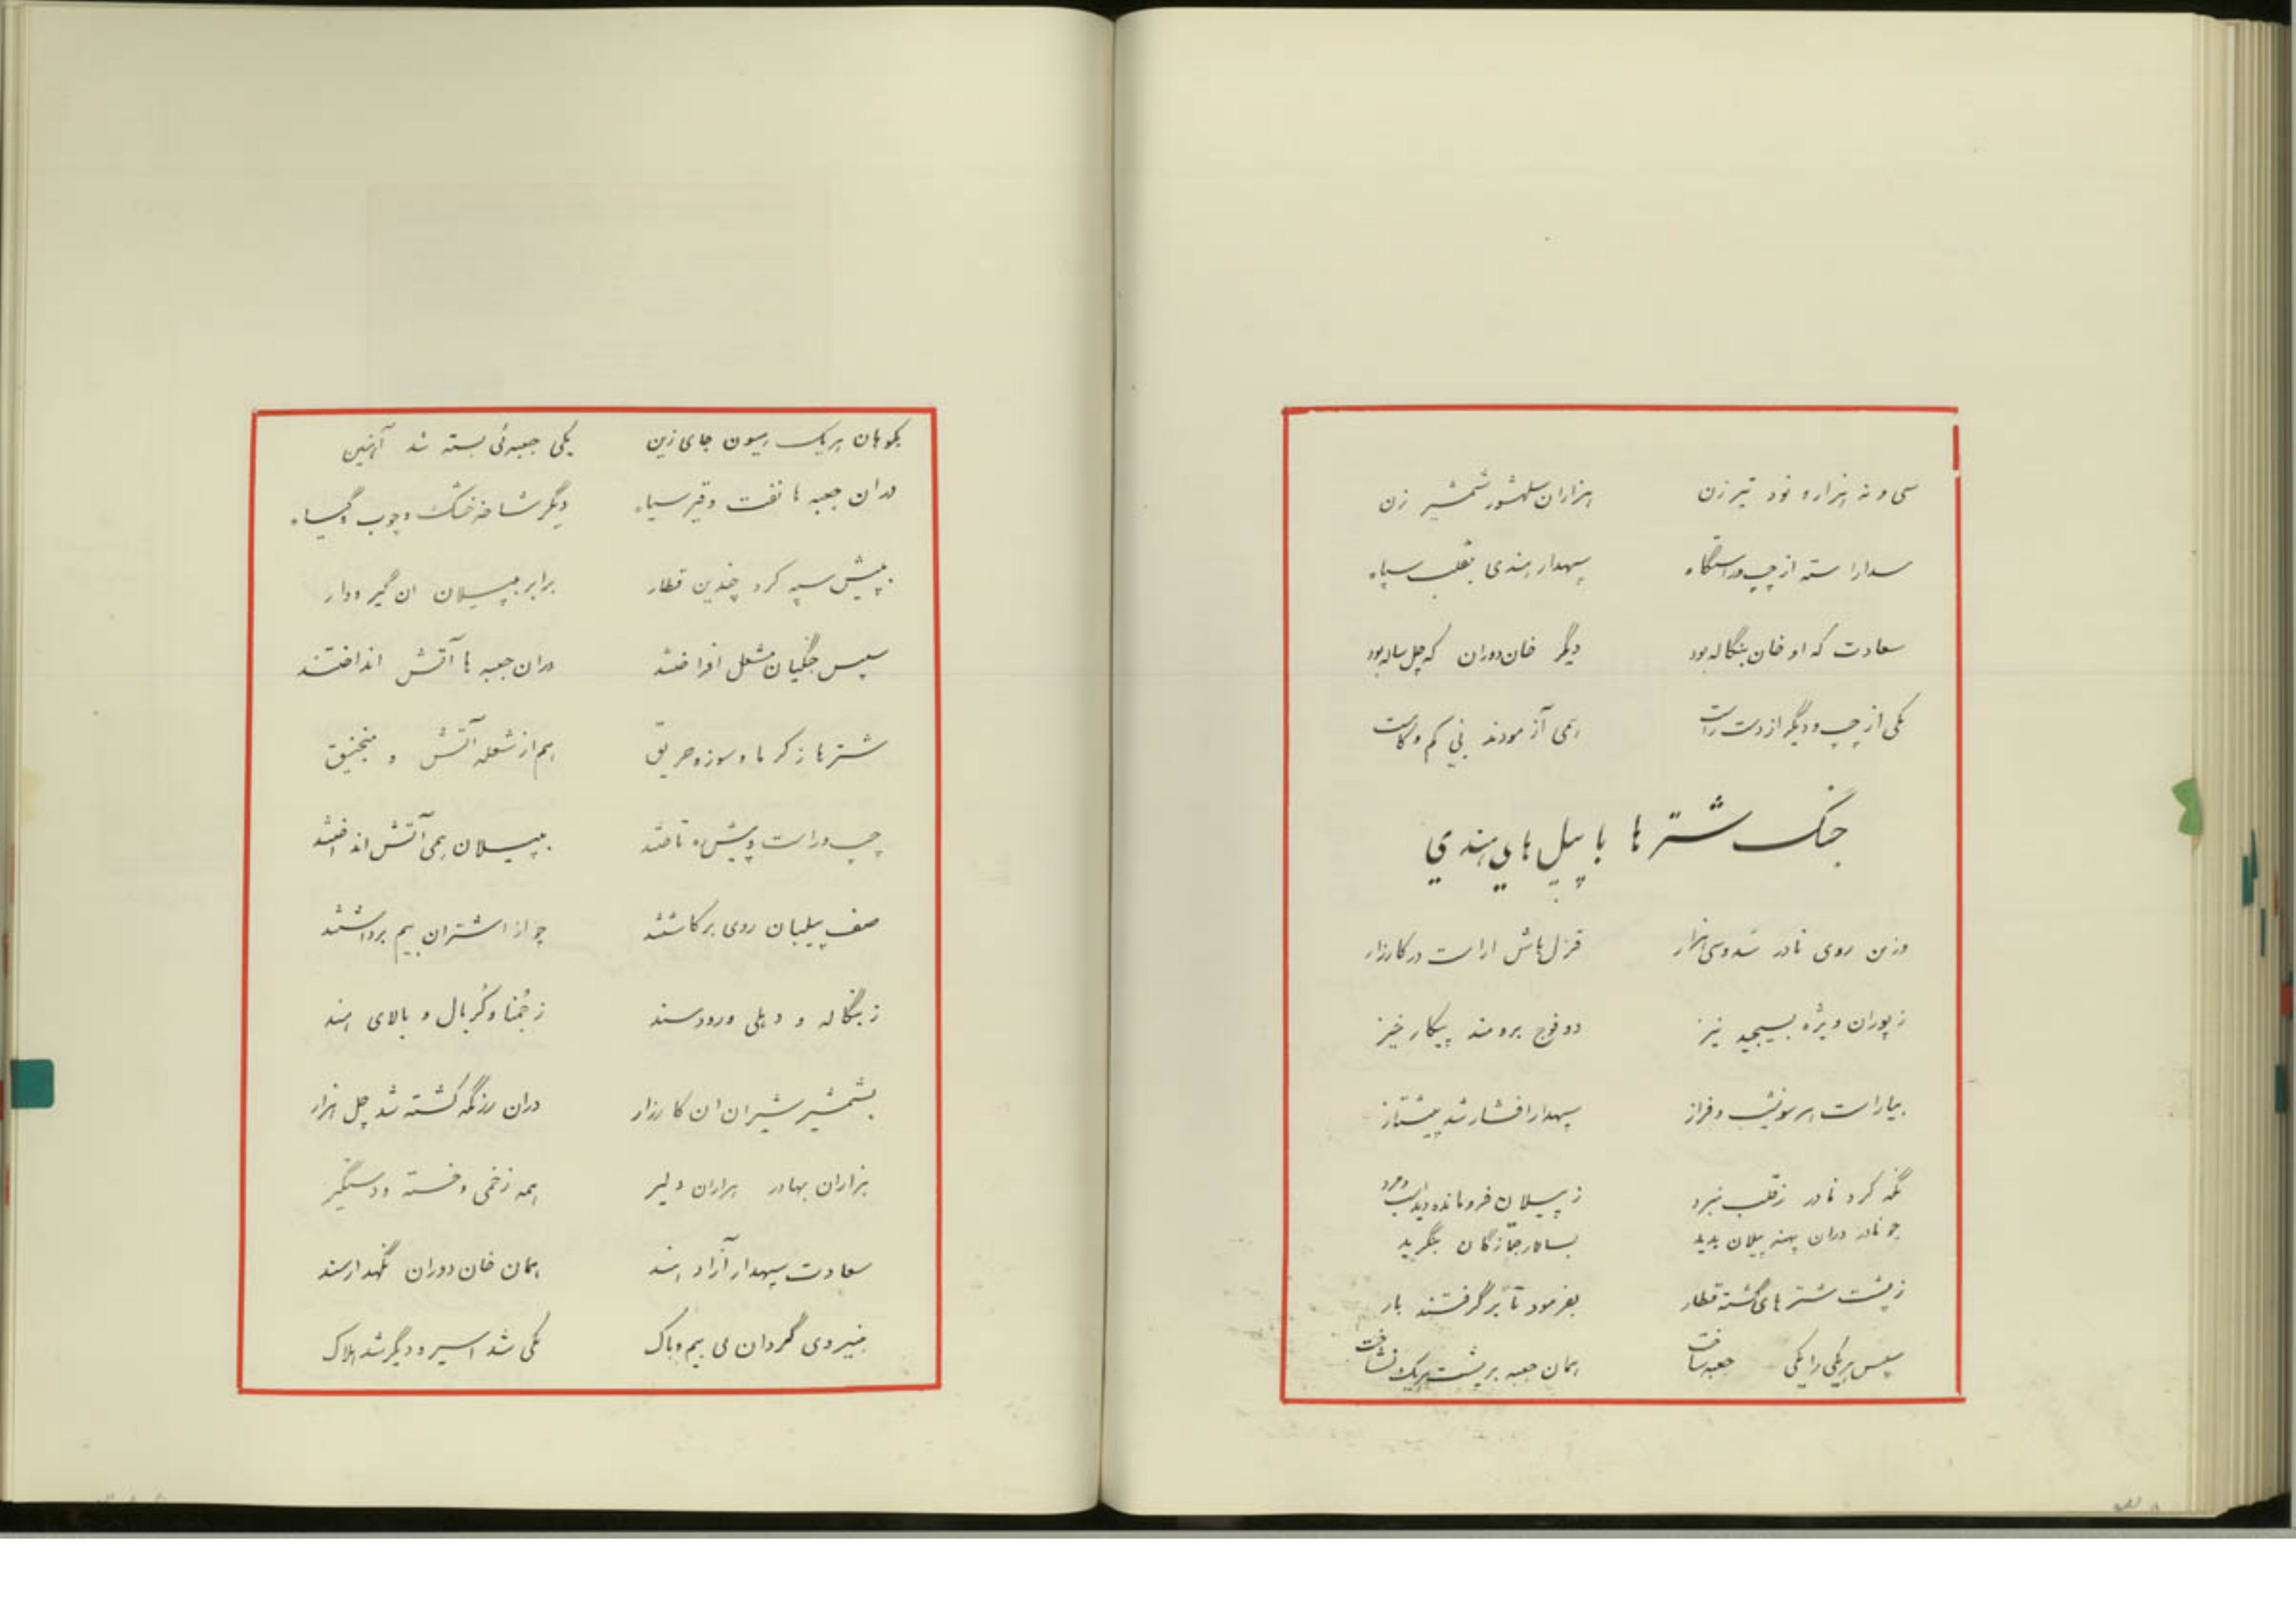 سی و نه هزار و نود تیر زن هزاران سلحشور شمشیر زن
سدارا سته از چپ و راستگاه سپهدار هندی بقلب سپاه
سعادت که او خان بنگاله بود دیگر خان دوران که چل ساله بود
یکی از چپ و دیگر از دست راست همی آزمودند بی کم و کاست
جنگ شترها با پیل های هندی
وزین روی نادر سدوسی هزار قزل باش اراست در کارزار
ز پوران ویژه بسیجید نیز دو فوج برومند پیکار خیز
بیاراست هر سو نشیب و فراز سپهدار افشار شد پیشتاز
نگه کرد نادر ز قلب نبرد ز پیلان فرومانده دید اسب و مرد
چو نادر دران پهنه پیلان بدید بسالار جمازگان بنگرید
ز پشت شترهای گشته قطار بفرمود تا بر گرفتند بار
سپس هریکی را یکی جعبه ساخت همان جعبه بر پشت هریک نشاخت
بکوهان هریک هیون جای زین یکی جعبه ئی بسته شد آهنین
دران جعبه ها نفت و قیر سیاه دیگر شاخه خشک و چوب و گیاه
بپیش سپه کرد چندین قطار برابر بپیلان ان گیر و دار
سپس جنگیان مشعل افراختند دران جعبه ها آتش انداختند
شترها ز گرما و سوزه حریق هم از شعله آتش و منجنیق
چپ و راست و پیش تاختند بپیلان همی آتش انداختند
صف پیلبان روی برکاشتند چو از اشتران بیم برداشتند
ز بنگاله و دهلی ورود سند ز جمنا و کربال و بالای هند
بشمشیر شیران ان کارزار دران رزمگه کشته شد چل هزار
هزاران بهادر هزاران دلیر همه زخمی و خسته و دستگیر
سعادت سپهدار آزاد هند همان خان دوران نگهدار سند
بنیروی گردان بی بیم و باک یکی شد اسیر و دیگر شد هلاک